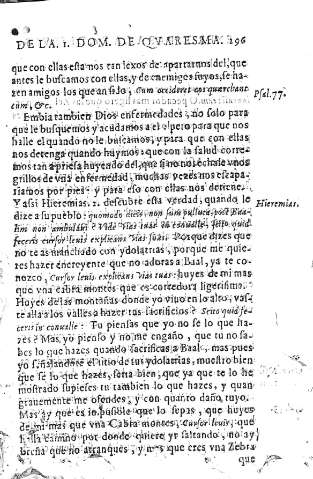 DE LA. 1. DOM. DE QVARESMA. 196
que con ellas estamos tan lexos de apartarnos del, que
antes le buscamos con ellas, y de enemigos suyos, se ha-
zen amigos los que an sido, Cum occideret eos quærebant
eum, &c.
Psal. 77.
Embia tambien Dios enfermedades, no solo para
que le busquemos y acudamos a el, pero para que nos
halle el quando no le buscamos, y para que con ellas
nos detenga quando huymos: que con la salud corre-
mos tan apriesa huyendo del, que si no nos echase vnos
grillos de vna enfermedad, muchas vezes nos escapa-
riamos por pies: y para eso con ellas nos detiene.
Y asi Hieremias. 2. descubre esta verdad, quando le
Hieremias.
dize a su pueblo: quomodo dicis, non sum polluta, post Baa-
lim non ambulaui? Vide vias tuas in conualle, scito quid
feceris cursor leuis explicans vias suas. Porque dizes que
no te as manchado con ydolatrias, porque me quie-
res hazer encreyente que no adoras a Baal, ya te co-
nozco, Cursor leuis explicans vias tuas: huyes de mi mas
que vna cabra montes que es corredora ligerisima.
Huyes de las montañas donde yo viuo en lo alto, vas-
te alla a los valles a hazer tus sacrificios? Scito quid fe-
ceris in conualle: Tu piensas que yo no se lo que ha-
zes? Mas yo pienso y no me engaño, que tu no sa-
bes lo que hazes quando sacrificas a Baal, mas pues
yo señalandote el sitio de tus ydolatrias, muestro bien
que se lo que hazes, sera bien, que ya que te lo he
mostrado supieses tu tambien lo que hazes, y quan
grauemente me ofendes, y con quanto daño tuyo.
Mas ay que es imposible que lo sepas, que huyes
de mi mas que vna Cabra montes, Cursor leuis, que
camino por donde quiere yr saltando, no ay
breña que no arranques, y mas que eres vna Zebra
que